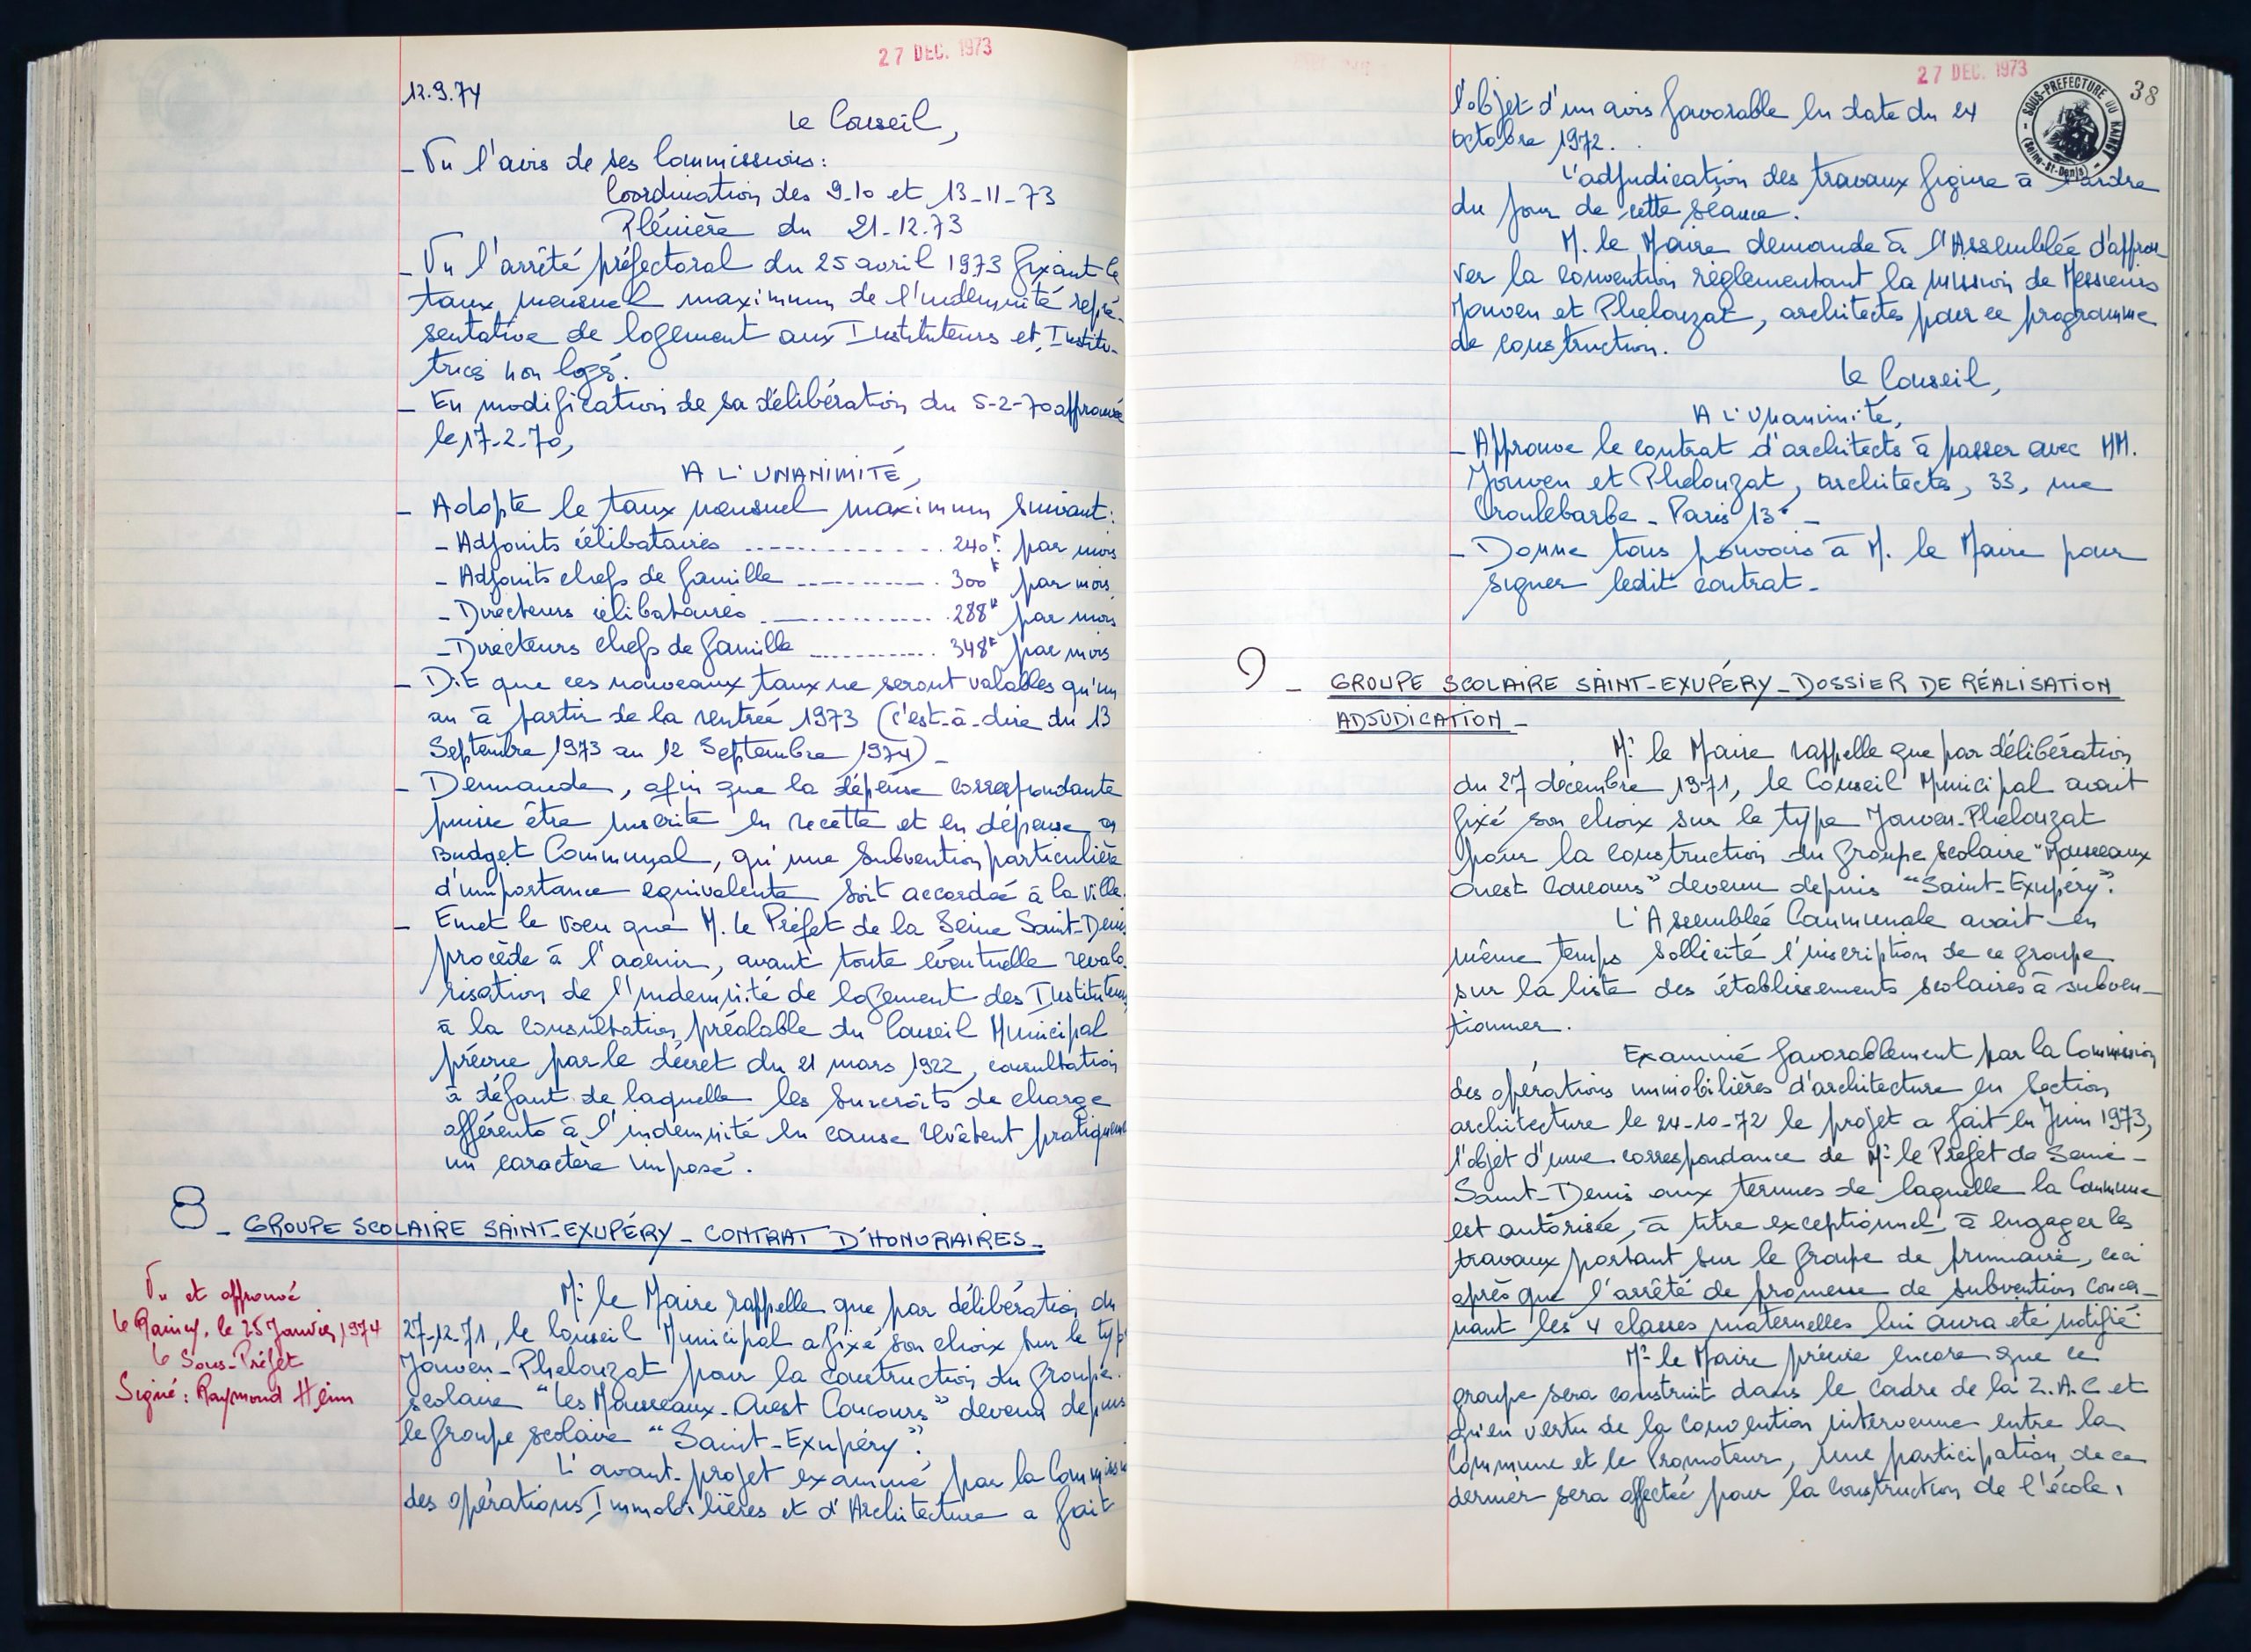 27 DEC. 1973
12.9.74
Le Conseil,
- Vu l'avis de ses Commissions:
Coordination des 9-10 et 13-11-73
Plénière du 21-12-73
- Vu l'arrêté préfectoral du 25 avril 1973 fixant le
taux mensuel maximum de l'indemnité repré-
sentative de logement aux Instituteurs et Institu-
trices non logés.
- En modification de sa délibération du 5-2-70 approuvée
le 17-2-70,
A L'UNANIMITÉ,
- Adopte le taux mensuel maximum suivant:
- Adjoints célibataires .......... 240F par mois
- Adjoints chefs de famille .......... 300F par mois
- Directeurs célibataires .......... 288F par mois
- Directeurs chefs de famille .......... 348F par mois
- Dit que ces nouveaux taux ne seront valables qu'un
an à partir de la rentrée 1973 (c'est-à-dire du 13
Septembre 1973 au 12 Septembre 1974)-
- Demande, afin que la dépense correspondante
puisse être inscrite en recette et en dépense au
Budget Communal, qu'une subvention particulière
d'importance équivalente soit accordée à la Ville.
- Emet le voeu que M. le Préfet de la Seine Saint-Denis
procède à l'avenir, avant toute éventuelle revalo-
risation de l'indemnité de logement des Instituteurs
à la consultation préalable du Conseil Municipal
prévue par le décret du 21 mars 1922, consultation
à défaut de laquelle les surcroîts de charge
afférents à l'indemnité en cause revêtent pratiquement
un caractère imposé.
8 - GROUPE SCOLAIRE SAINT-EXUPÉRY - CONTRAT D'HONORAIRES-
Vu et approuvé
Le Raincy, le 25 Janvier 1974
Le Sous-Préfet
Signé: Raymond Heim
Mr le Maire rappelle que par délibération du
27-12-71, le Conseil Municipal a fixé son choix sur le type
Jouven-Phelouzat pour la construction du Groupe
scolaire "Les Mousseaux-Ouest Concours" devenu depuis
le Groupe scolaire "Saint-Exupéry".
L'avant-projet examiné par la Commission
des opérations Immobilières et d'Architecture a fait
27 DEC. 1973
38
SOUS-PREFECTURE DU RAINCY
(Seine-St-Denis)
l'objet d'un avis favorable en date du 24
octobre 1972.
L'adjudication des travaux figure à l'ordre
du jour de cette séance.
M. le Maire demande à l'Assemblée d'approu
ver la convention règlementant la mission de Messieurs
Jouven et Phelouzat, architectes pour ce programme
de construction.
Le Conseil,
A L'Unanimité,
- Approuve le contrat d'architecte à passer avec MM.
Jouven et Phelouzat, architectes, 33, rue
Croulebarbe - Paris 13e -
- Donne tous pouvoirs à M. le Maire pour
signer ledit contrat-
9 - GROUPE SCOLAIRE SAINT-EXUPÉRY-DOSSIER DE RÉALISATION
ADJUDICATION-
Mr le Maire rappelle que par délibération
du 27 décembre 1971, le Conseil Municipal avait
fixé son choix sur le type Jouven-Phelouzat
pour la construction du Groupe scolaire "Mousseaux
Ouest Concours" devenu depuis "Saint-Exupéry".
L'Assemblée Communale avait en
même temps sollicité l'inscription de ce groupe
sur la liste des établissements scolaires à subven-
tionner.
Examiné favorablement par la Commission
des opérations immobilières d'architecture en Section
architecture le 24-10-72 le projet a fait en Juin 1973,
l'objet d'une correspondance de Mr le Préfet de Seine-
Saint-Denis aux termes de laquelle la Commune
est autorisée, à titre exceptionnel à engager les
travaux portant sur le groupe de primaire, ceci
après que l'arrêté de promesse de subvention concer-
nant les 4 classes maternelles lui aura été notifié.
Mr le Maire précise encore que ce
groupe sera construit dans le cadre de la Z.A.C et
qu'en vertu de la convention intervenue entre la
Commune et le Promoteur, une participation de ce
dernier sera affectée pour la construction de l'école.